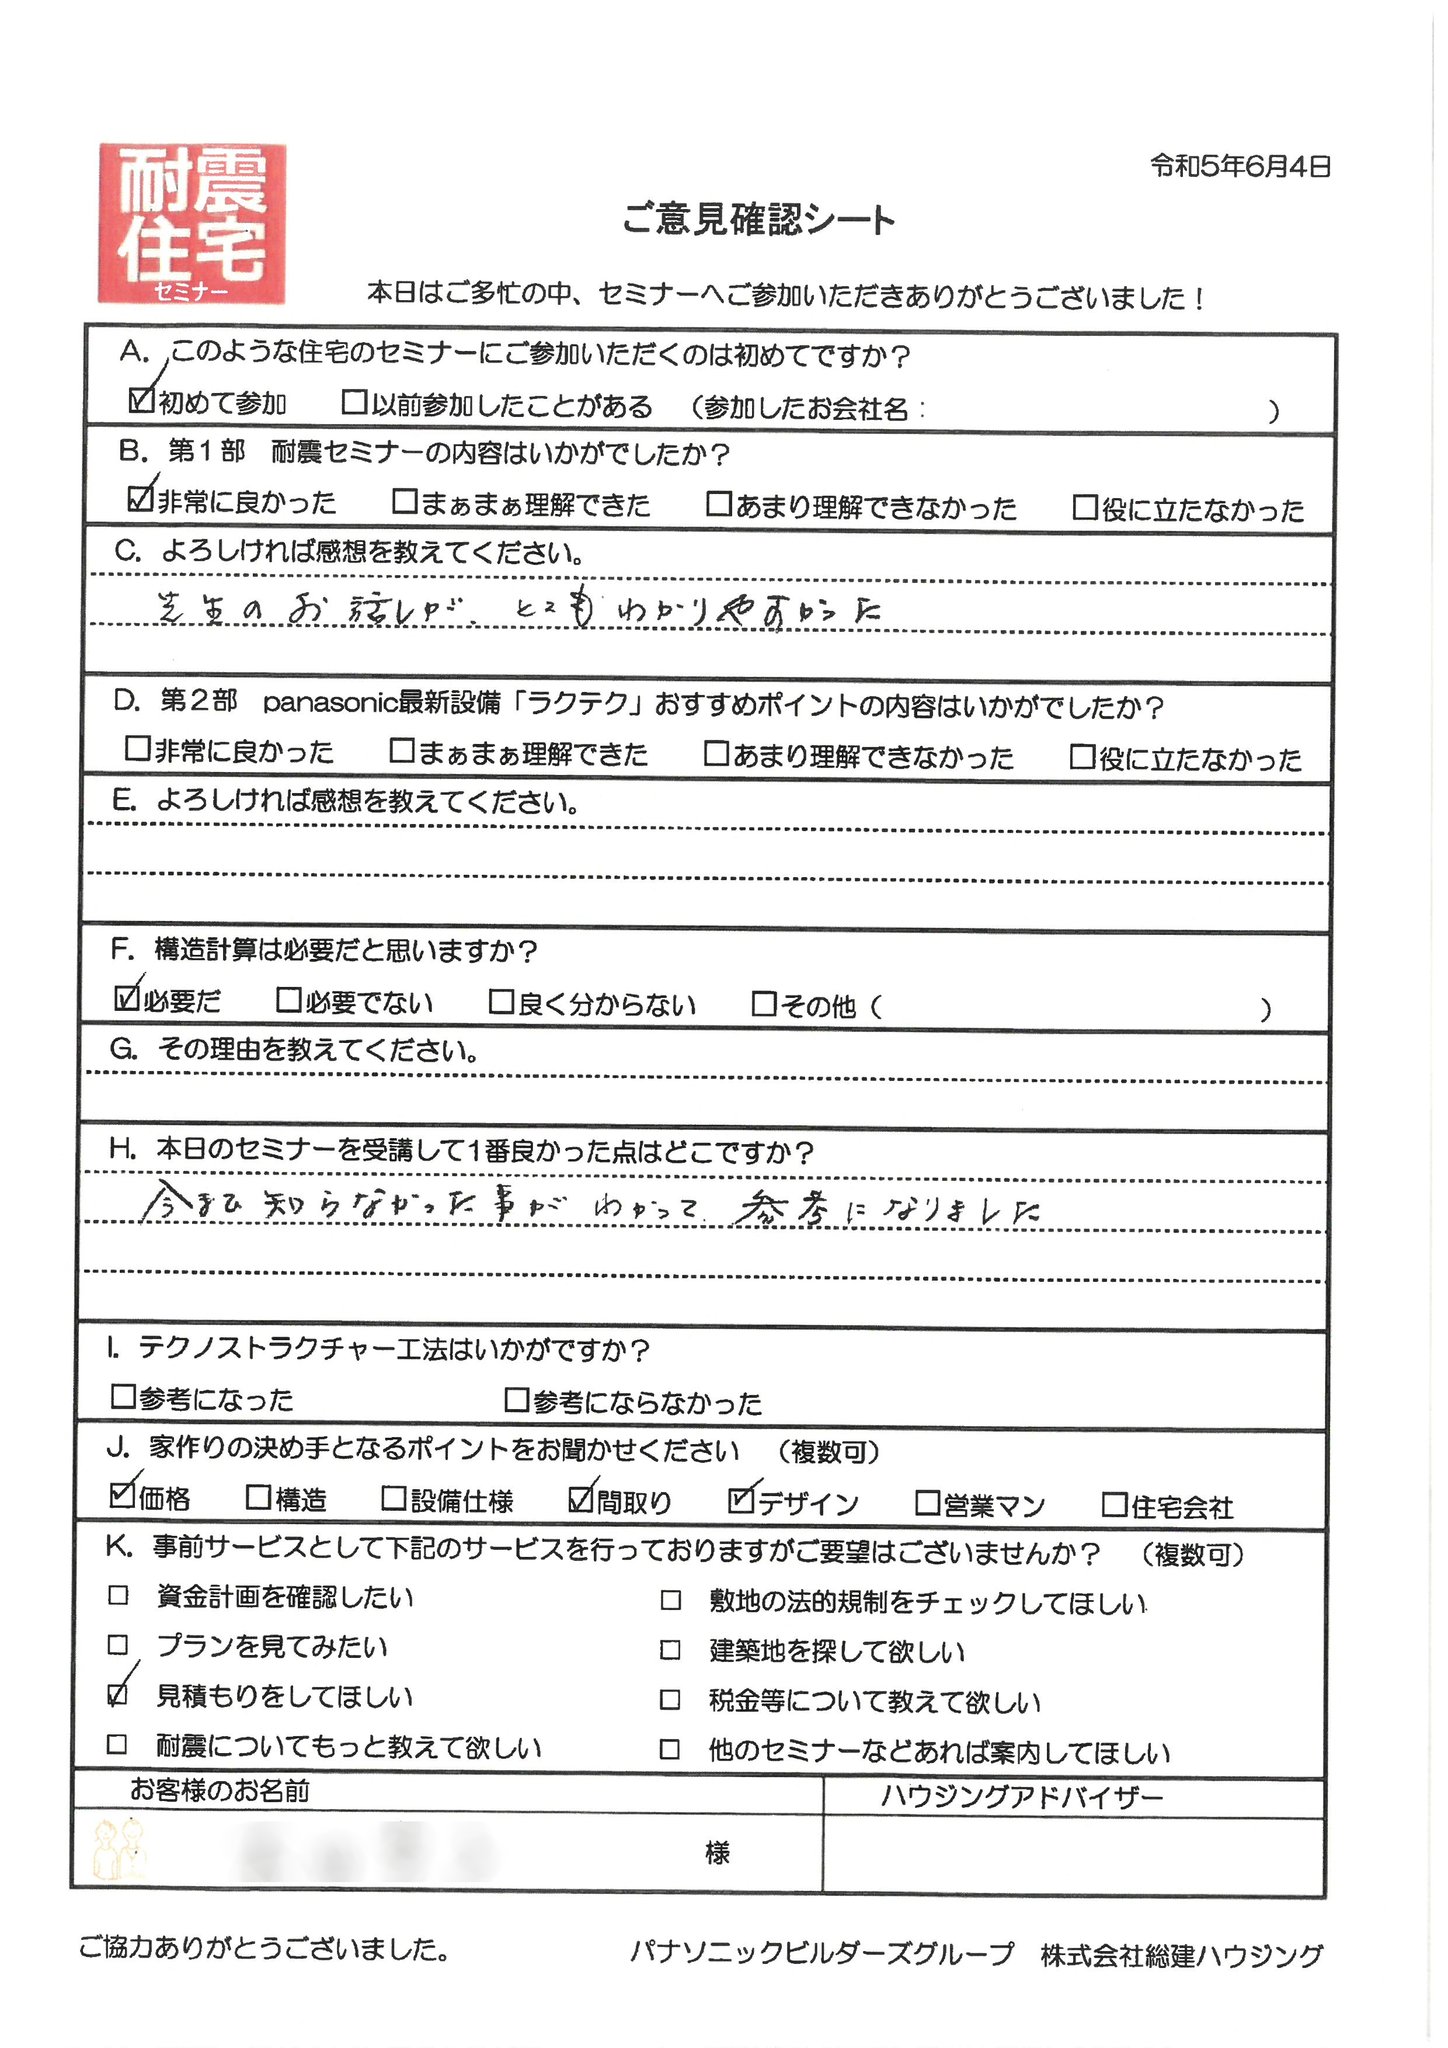 耐震
住宅
セミナー
令和5年6月4日
ご意見確認シート
本日はご多忙の中、セミナーへご参加いただきありがとうございました！
A. このような住宅のセミナーにご参加いただくのは初めてですか？
☑初めて参加 □以前参加したことがある （参加したお会社名： ）
B. 第1部 耐震セミナーの内容はいかがでしたか？
☑非常に良かった □まぁまぁ理解できた □あまり理解できなかった □役に立たなかった
C. よろしければ感想を教えてください。
先生のお話しが、とてもわかりやすかった
D. 第2部 panasonic最新設備「ラクテク」おすすめポイントの内容はいかがでしたか？
□非常に良かった □まぁまぁ理解できた □あまり理解できなかった □役に立たなかった
E. よろしければ感想を教えてください。
F. 構造計算は必要だと思いますか？
☑必要だ □必要でない □良く分からない □その他（ ）
G. その理由を教えてください。
H. 本日のセミナーを受講して1番良かった点はどこですか？
今まで知らなかった事がわかって、参考になりました
I. テクノストラクチャー工法はいかがですか？
□参考になった □参考にならなかった
J. 家作りの決め手となるポイントをお聞かせください （複数可）
☑価格 □構造 □設備仕様 ☑間取り ☑デザイン □営業マン □住宅会社
K. 事前サービスとして下記のサービスを行っておりますがご要望はございませんか？ （複数可）
□ 資金計画を確認したい □ 敷地の法的規制をチェックしてほしい
□ プランを見てみたい □ 建築地を探して欲しい
☑ 見積もりをしてほしい □ 税金等について教えて欲しい
□ 耐震についてもっと教えて欲しい □ 他のセミナーなどあれば案内してほしい
お客様のお名前 ハウジングアドバイザー
様
ご協力ありがとうございました。 パナソニックビルダーズグループ 株式会社総建ハウジング